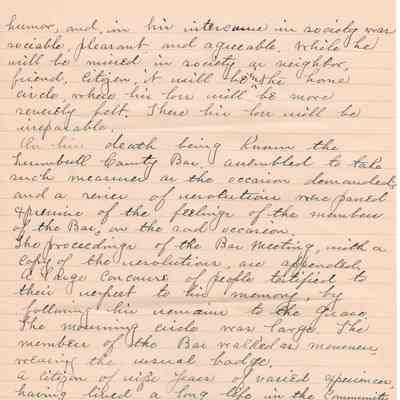 humor, and in his intercourse in society was
sociable, pleasant and agreeable, while he
will be missed in society as neighbor,
friend, citizen, it will be in the home
circle, where his loss will be more
severely felt. There his loss will be
irreparable.
On his death being known the
Trumbull County Bar assembled to take
such measures as the occasion demanded
and a series of resolutions were passed
expressive of the feelings of the members
of the Bar, on the sad occasion.
The proceedings of the Bar meeting, with a
copy of the resolutions, are appended,
A large concourse of people testified to
their respect to his memory, by
following his remains to the Grave.
The mourning circle was large. The
members of the Bar walked as mourners,
wearing the usual badge.
A citizen of ripe years of varied experiences,
having lived a long life in the community